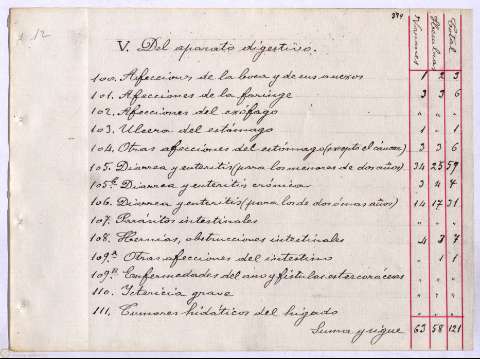 12
379
V. Del aparato digestivo.
Varones Hembras Total
100. Afecciones de la boca y de sus anexos 1 2 3
101. Afecciones de la faringe 3 3 6
102. Afecciones del exófago " " "
103. Ulcera del estómago 1 " 1
104. Otras afecciones del estómago (excepto el cáncer) 3 3 6
105. Diarrea y enteritis (para los menores de dos años) 34 25 59
105 b. Diarrea y enteritis crónica 3 4 7
106. Diarrea y enteritis (para los de dos ó mas años) 14 17 31
107. Parásitos intestinales " " "
108. Hernias, obstrucciones intestinales 4 3 7
109 a. Otras afecciones del intestino " 1 1
109 b. Enfermedades del ano y fístulas estercoráceas " " "
110. Ictericia grave " " "
111. Tumores hidáticos del hígado " " "
Suma y sigue 63 58 121